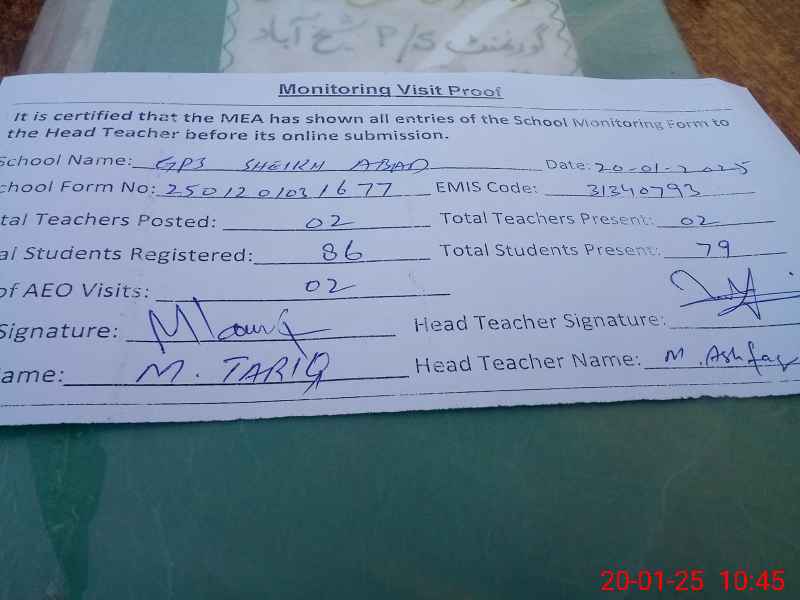 گورنمنٹ P/S شیخ آباد
Monitoring Visit Proof
It is certified that the MEA has shown all entries of the School Monitoring Form to
the Head Teacher before its online submission.
School Name: GPS SHEIKH ABAD Date: 20-01-2025
chool Form No: 250120103 1677 EMIS Code: 31340793
tal Teachers Posted: 02 Total Teachers Present: 02
al Students Registered: 86 Total Students Present: 79
of AEO Visits: 02
Signature: Head Teacher Signature:
ame: M. TARIQ Head Teacher Name: M. Ashfaq
20-01-25 10:45